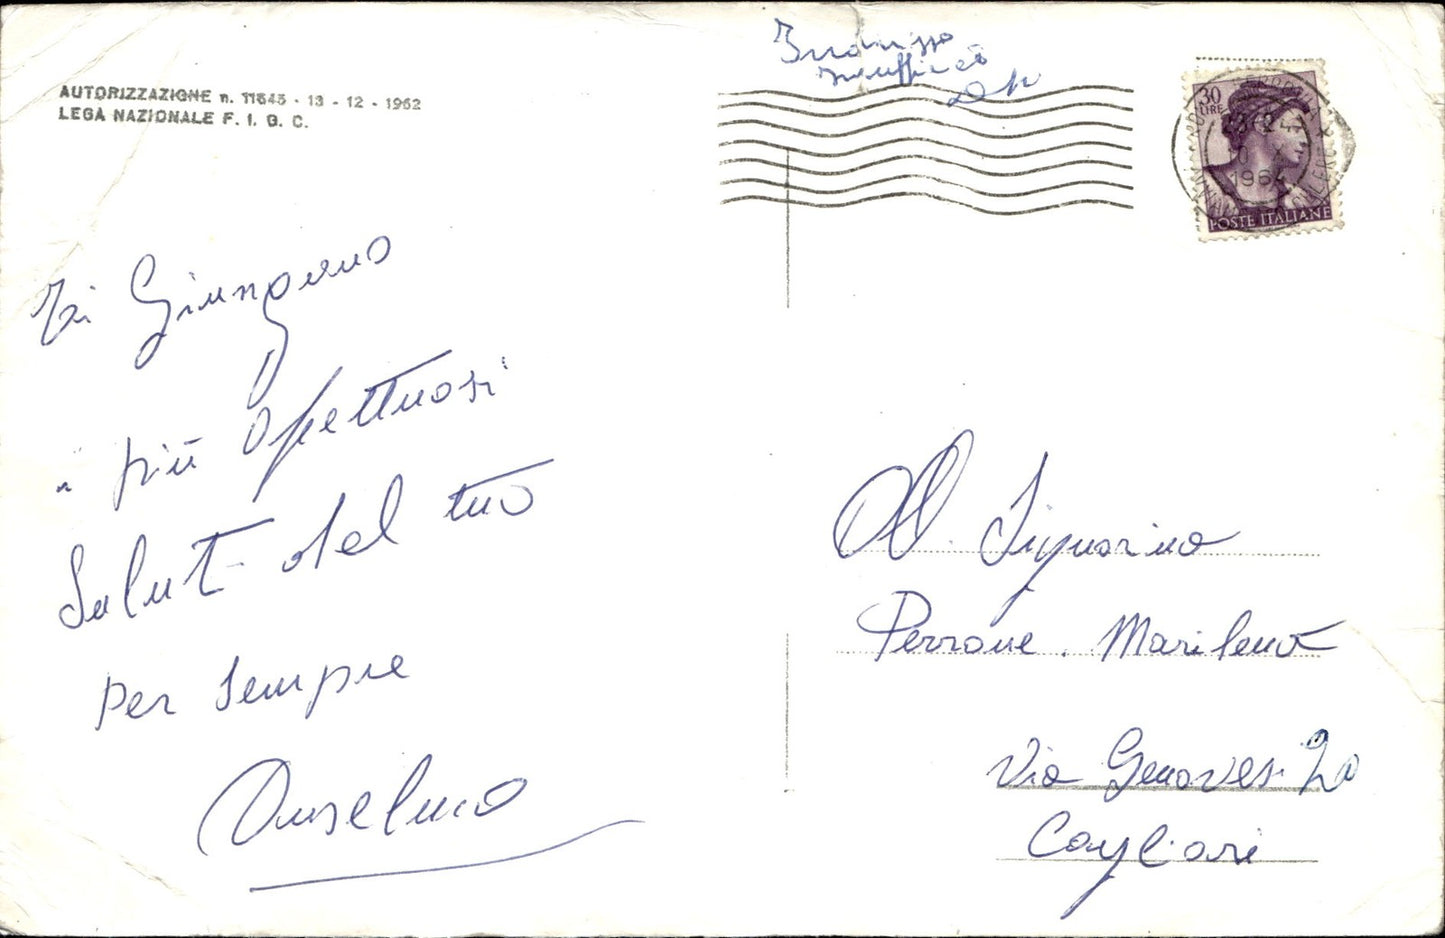 AUTORIZZAZIONE n. 11545 - 13 - 12 - 1962
LEGA NAZIONALE F. I. G. C.
Indirizzo
insufficiente
30
LIRE
1964
POSTE ITALIANE
Ti Giungano
i più affettuosi
Saluti del tuo
per sempre
Anselmo
All. Signorina
Perrone. Marilena
Via Genovesi 20
Cagliari